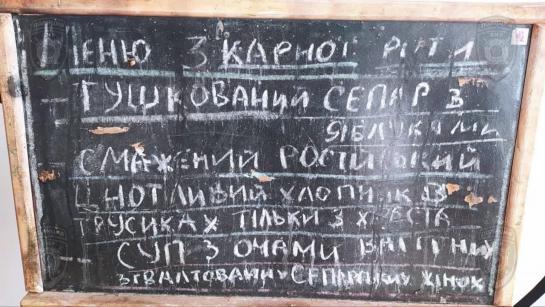 Меню З КАРНОЇ РОТИ
– ТУШКОВАНИЙ СЕПАР З
ЯБЛУКАМИ
– СМАЖЕНИЙ РОСТИСЬКИЙ
ЦНОТЛИВИЙ ХЛОПЧИК В
ТРУСИКАХ ТІЛЬКИ З ХРЕСТА
– СУП З ОЧАМИ ВАГІТНИХ
ЗГВАЛТОВАНИХ СЕПАРСЬКИХ ЖІНОК